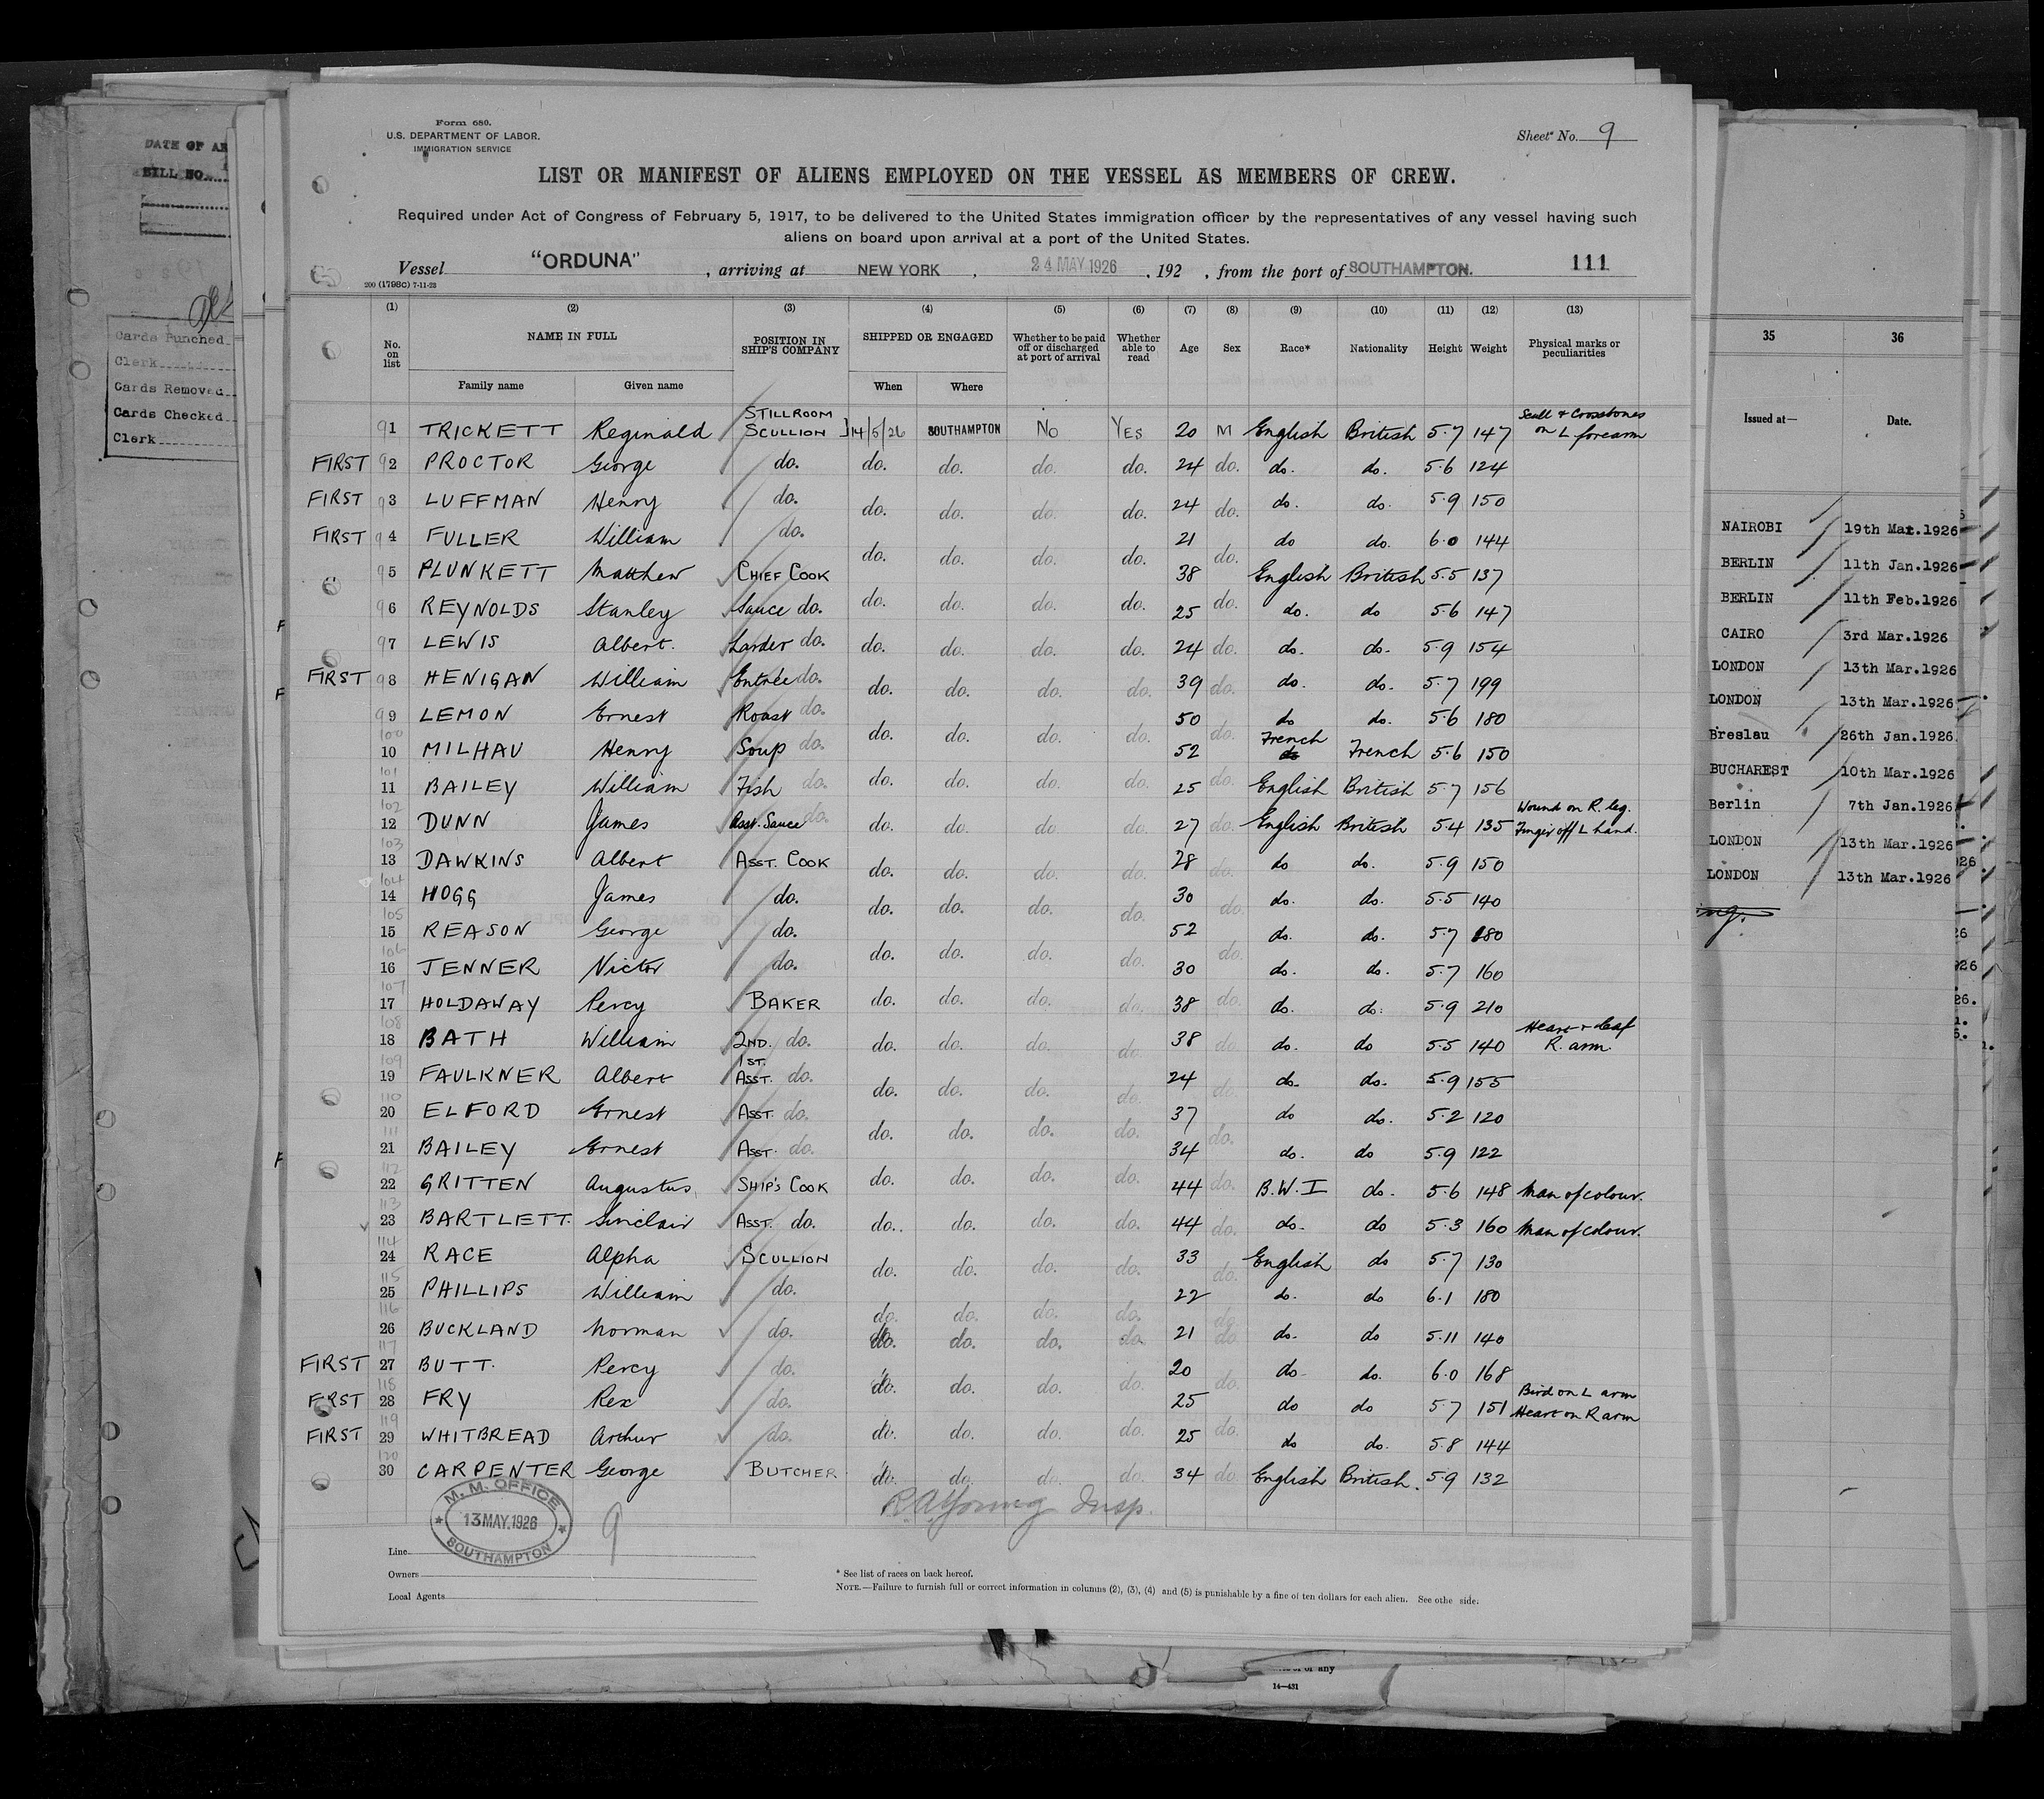 Form 680.
U.S. DEPARTMENT OF LABOR.
IMMIGRATION SERVICE
Sheet No. 9
LIST OR MANIFEST OF ALIENS EMPLOYED ON THE VESSEL AS MEMBERS OF CREW.
Required under Act of Congress of February 5, 1917, to be delivered to the United States immigration officer by the representatives of any vessel having such
aliens on board upon arrival at a port of the United States.
Vessel "ORDUNA", arriving at NEW YORK, 24 MAY 1926, 192 , from the port of SOUTHAMPTON. 111
200 (1798C) 7-11-23
(1) (2) (3) (4) (5) (6) (7) (8) (9) (10) (11) (12) (13)
No. on list NAME IN FULL POSITION IN SHIP'S COMPANY SHIPPED OR ENGAGED Whether to be paid off or discharged at port of arrival Whether able to read Age Sex Race* Nationality Height Weight Physical marks or peculiarities
Family name Given name When Where
91 TRICKETT Reginald STILLROOM SCULLION 14/5/26 SOUTHAMPTON No YES 20 M English British 5.7 147 Scull & Crossbones on L forearm
FIRST 92 PROCTOR George do. do. do. do. do. 24 do. do. do. 5.6 124
FIRST 93 LUFFMAN Henry do. do. do. do. do. 24 do. do. do. 5.9 150
FIRST 94 FULLER William do. do. do. do. do. 21 do. do do. 6.0 144
95 PLUNKETT Matthew CHIEF COOK do. do. do. do. 38 do. English British 5.5 137
96 REYNOLDS Stanley Sauce do. do. do. do. do. 25 do. do. do 5.6 147
97 LEWIS Albert. Larder do. do. do. do. do. 24 do. do. do. 5.9 154
FIRST 98 HENIGAN William Entrée do. do. do. do. do. 39 do. do. do. 5.7 199
99 LEMON Ernest Roast do. do. do. do. do. 50 do. do do. 5.6 180
100 10 MILHAU Henry Soup do. do. do. do. do. 52 do. French do French 5.6 150
101 11 BAILEY William Fish do. do. do. do. do. 25 do. English British 5.7 156
102 12 DUNN James Asst. Sauce do. do. do. do. do. 27 do. English British 5.4 135 Wound on R. leg. Finger off L hand.
103 13 DAWKINS Albert ASST. COOK do. do. do. do. 28 do. do do. 5.9 150
104 14 HOGG James do. do. do. do. do. 30 do. do. do. 5.5 140
105 15 REASON George do. do. do. do. do. 52 do. do. do. 5.7 180
106 16 JENNER Victor do. do. do. do. do. 30 do. do. do. 5.7 160
107 17 HOLDAWAY Percy BAKER do. do. do. do. 38 do. do. do. 5.9 210
108 18 BATH William 2ND. do. do. do. do. do. 38 do. do. do 5.5 140 Heart & leaf R. arm.
109 19 FAULKNER Albert 1ST. ASST. do. do. do. do. do. 24 do. do. do. 5.9 155
110 20 ELFORD Ernest ASST. do. do. do. do. do. 37 do. do do. 5.2 120
111 21 BAILEY Ernest ASST. do. do. do. do. do. 34 do. do. do 5.9 122
112 22 GRITTEN Augustus, SHIP'S COOK do. do. do. do. 44 do. B.W.I do. 5.6 148 Man of colour.
113 23 BARTLETT. Sinclair ASST. do. do. do. do. do. 44 do. do. do 5.3 160 Man of colour.
114 24 RACE Alpha SCULLION do. do. do. do. 33 do. English do 5.7 130
115 25 PHILLIPS William do. do. do. do. do. 22 do. do. do 6.1 180
116 26 BUCKLAND Norman do. do. do. do. do. 21 do. do. do 5.11 140
FIRST 117 27 BUTT. Percy do. do. do. do. do. 20 do. do do. 6.0 168
FIRST 118 28 FRY Rex do. do. do. do. do. 25 do. do do 5.7 151 Bird on L arm Heart on R arm
FIRST 119 29 WHITBREAD Arthur do. do. do. do. do. 25 do. do do. 5.8 144
120 30 CARPENTER George BUTCHER do. do. do. do. 34 do. English British. 5.9 132
R A Young Insp.
M. M. OFFICE
13 MAY.1926
SOUTHAMPTON
9
Line
Owners
Local Agents
* See list of races on back hereof.
NOTE.—Failure to furnish full or correct information in columns (2), (3), (4) and (5) is punishable by a fine of ten dollars for each alien. See othe side.
DATE OF AR
BILL NO.
Cards Punched
Clerk
Cards Removed
Cards Checked
Clerk
35 36
Issued at— Date.
NAIROBI 19th Mar.1926
BERLIN 11th Jan.1926
BERLIN 11th Feb.1926
CAIRO 3rd Mar.1926
LONDON 13th Mar.1926
LONDON 13th Mar.1926
Breslau 26th Jan.1926.
BUCHAREST 10th Mar.1926
Berlin 7th Jan.1926
LONDON 13th Mar.1926
LONDON 13th Mar.1926
of any
14—431